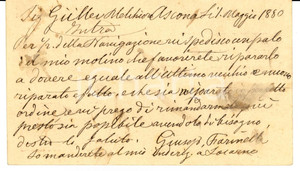 Sig. Gülle Melchior Ascona li 1. Maggio 1880
Intra
Per p. della Navigazione vi spedisco un palo
del mio molino che favorirete ripararlo
a dovere eguale all'altro vecchio e nuovo
riparato e che sia
ordine e vi prego di rimandarmelo più
presto sia possibile avendolo di bisogno,
distin. lo saluto. Giusep. Farinelli
Lo manderete al mio a Locarno